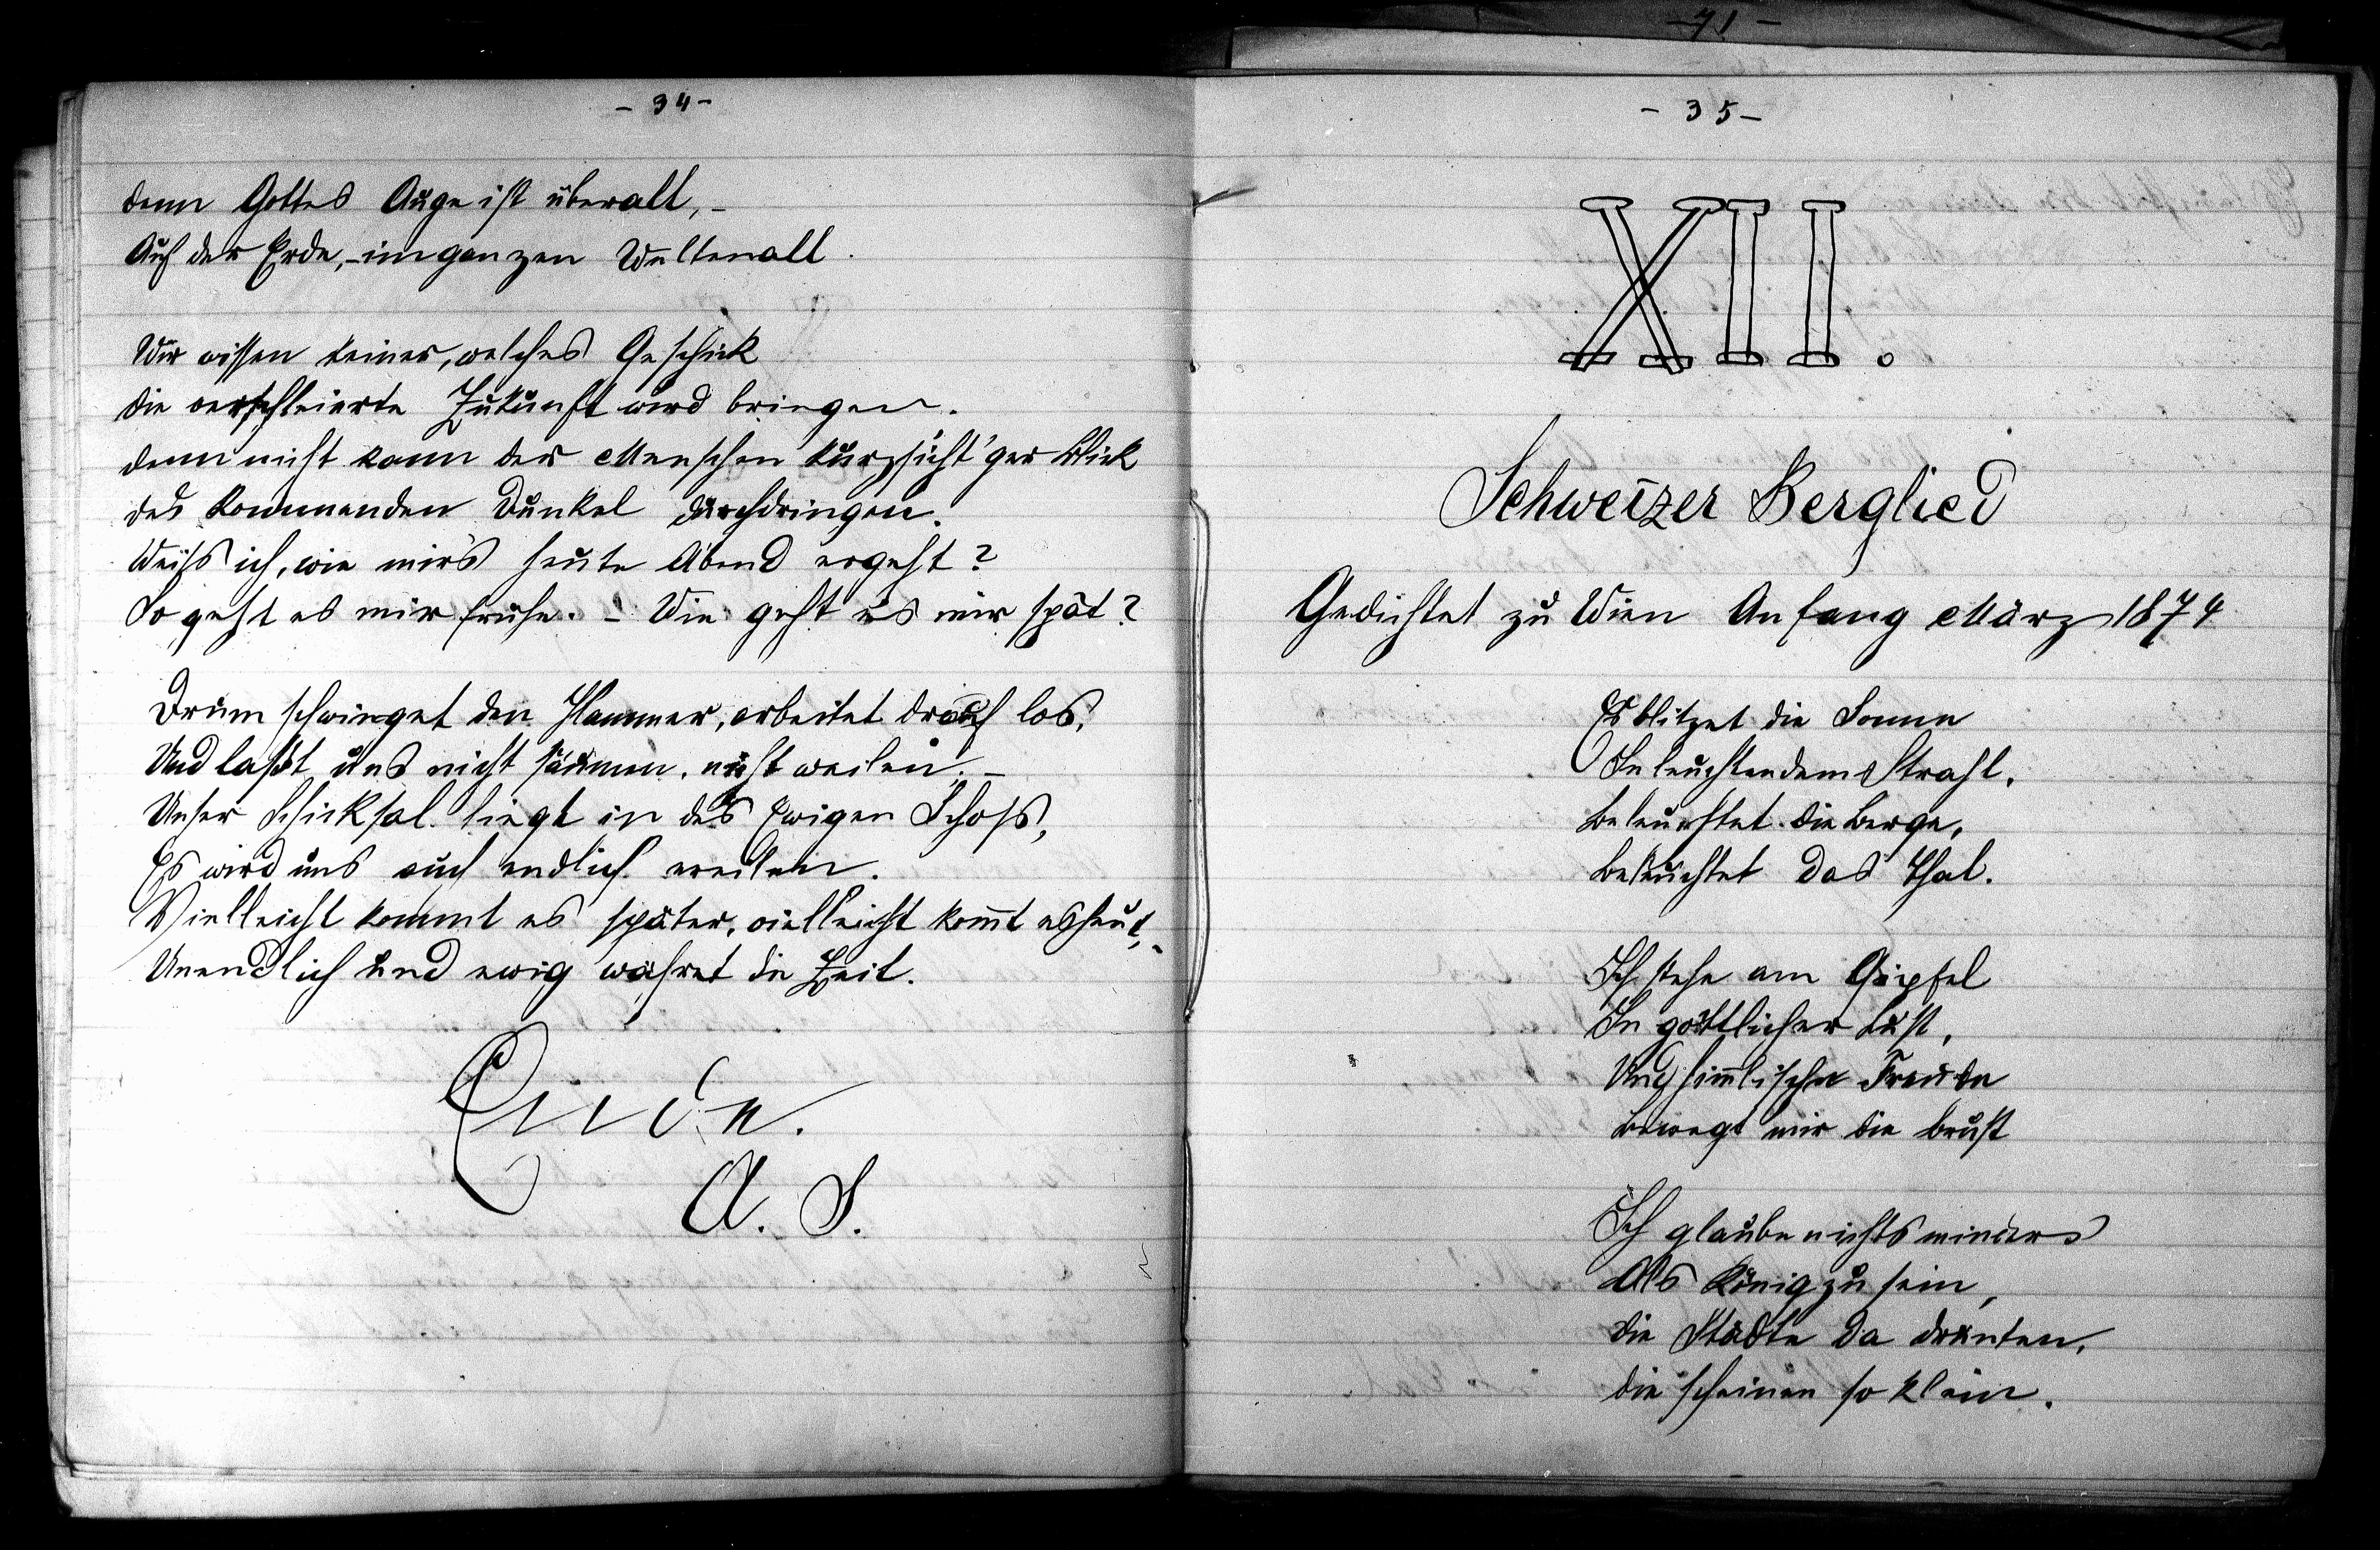 - 34 -
denn Gottes Auge ist überall, -
Auf der Erde, - im ganzen Weltenall.
Wir wissen keiner, welches Geschick
die verschleierte Zukunft wird bringen.
denn nicht kann der Menschen kurzsicht'ger Blick
des kommenden Dunkel durchdringen.
Weiß ich, wie mir's heute Abend ergeht?
So geht es mir fruhe. - Wie geht es mir spät?
Drum schwinget den Hammer, arbeitet drauf los,
Und laßt uns nicht säumen, nicht weilen. -
Unser Schicksal liegt in des Ewigen Schoß,
Es wird uns auch endlich ereilen.
Vielleicht kommt es später, vielleicht kom̄t es heut, -
Unendlich und ewig währet die Zeit.
Ende.
A. S.
- 41 -
- 35 -
XII.
Schweizer Berglied
Gedichtet zu Wien Anfang März 1874
Es blitzet die Sonne
In leuchtendem Strahl,
Beleuchtet die Berge,
Beleuchtet das Thal.
Ich stehe am Gipfel
In göttlicher Lust,
Und him̄lische Freude
Bewegt mir die Brust
Ich glaube nichts minders
Als König zu sein,
die Städte da drunten,
die scheinen so klein.